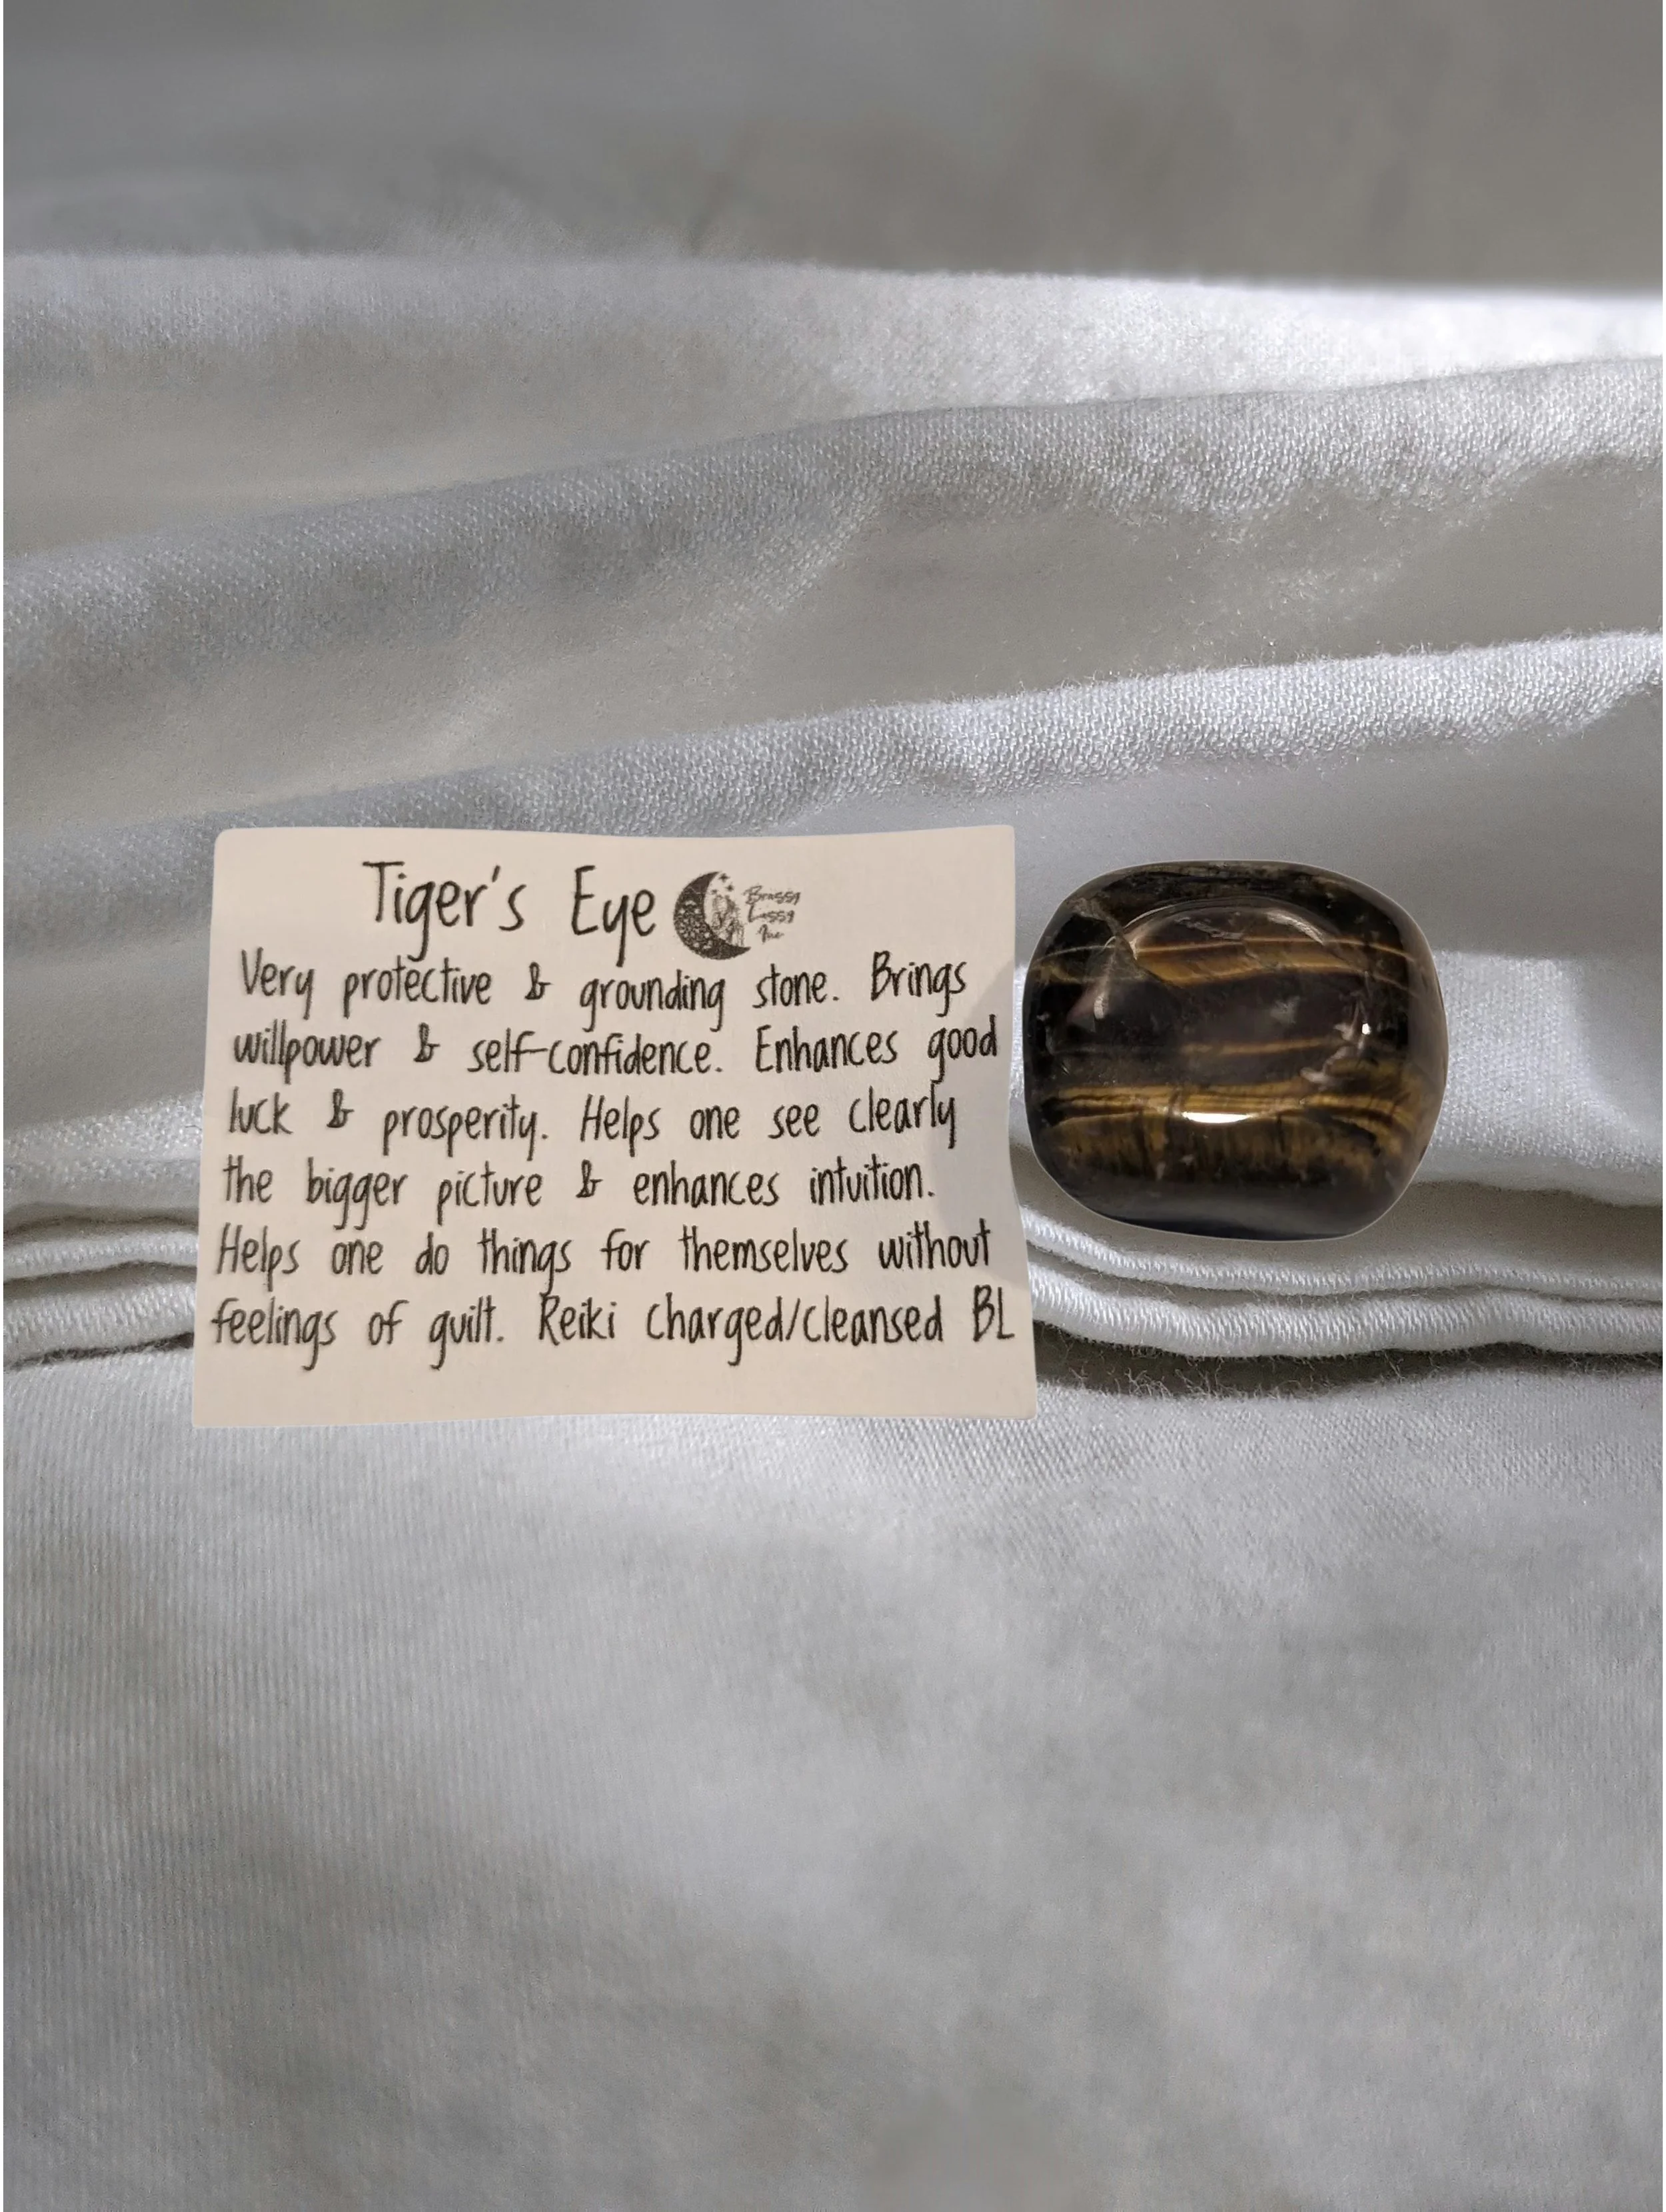 Tiger's Eye
Brassy
Lassy
Inc
Very protective & grounding stone. Brings
willpower & self-confidence. Enhances good
luck & prosperity. Helps one see clearly
the bigger picture & enhances intuition.
Helps one do things for themselves without
feelings of guilt. Reiki charged/cleansed BL